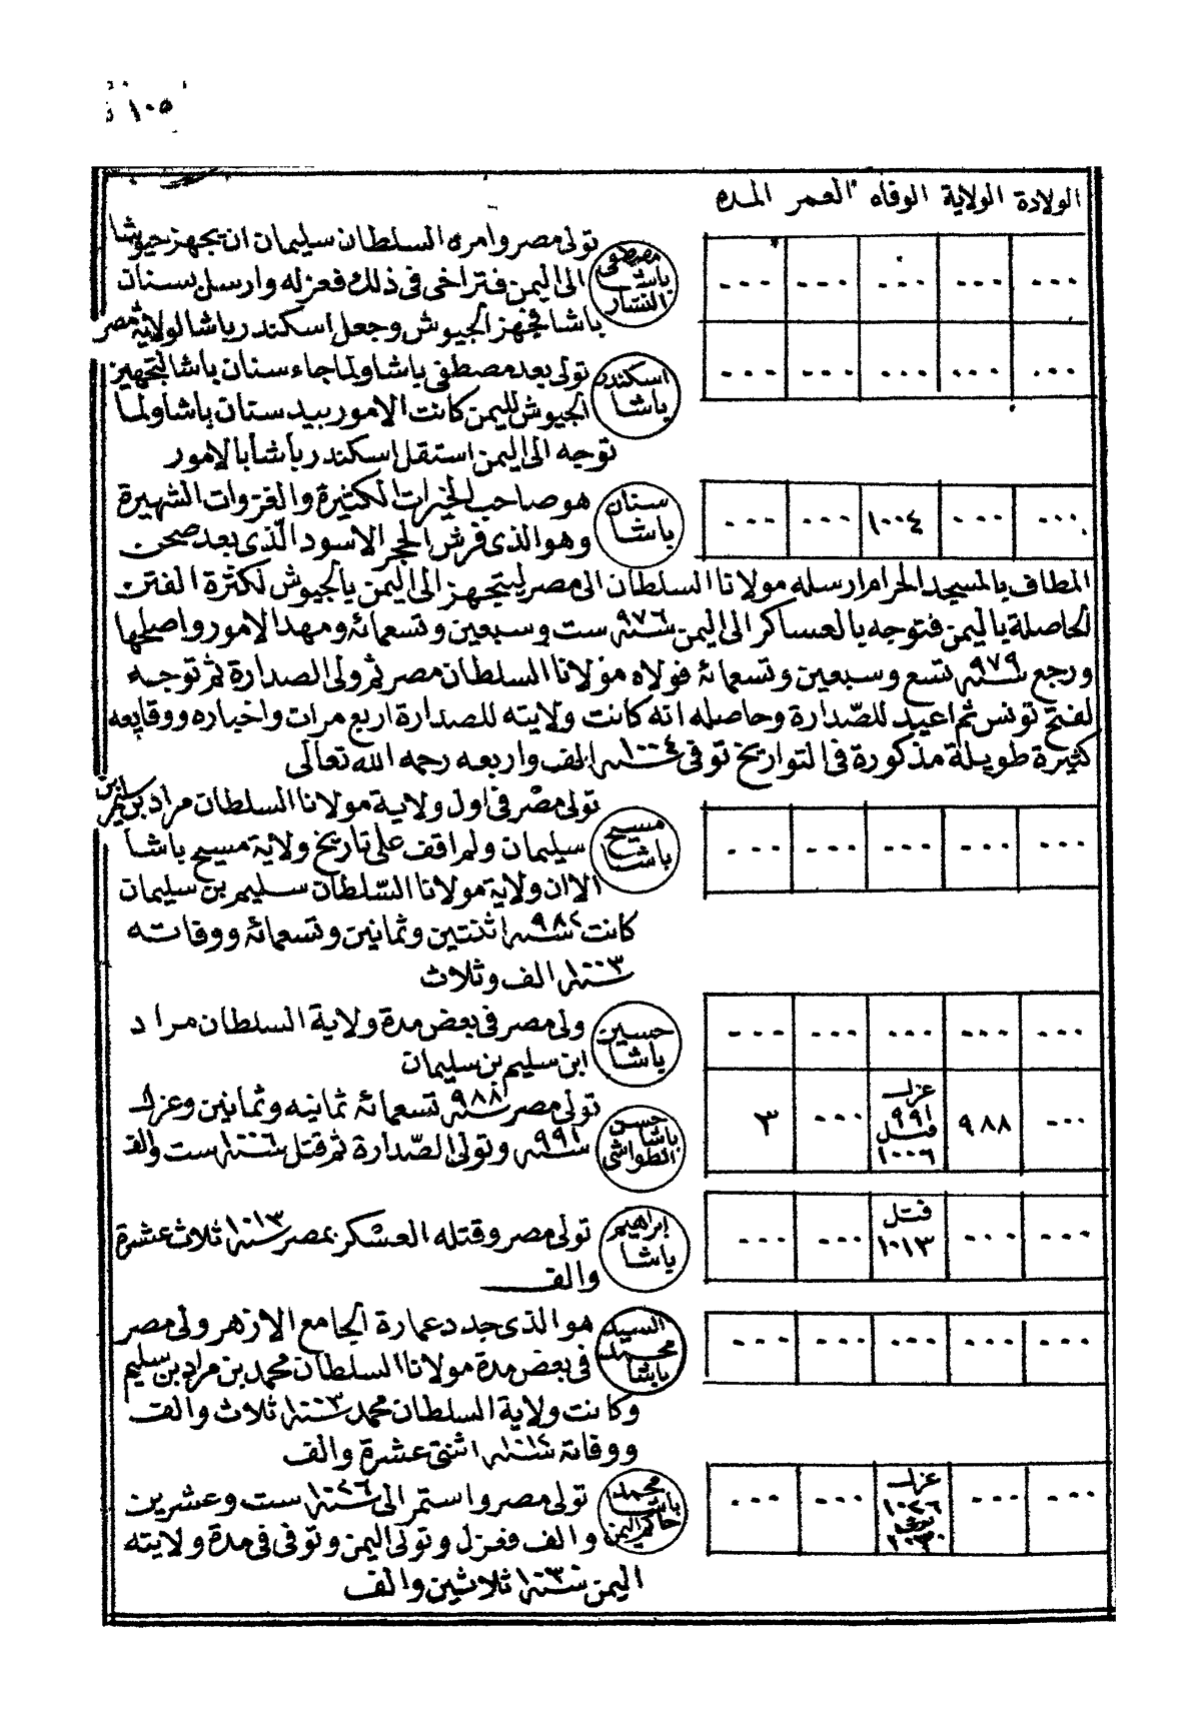 ١٠٥
الولادة الولاية الوفاه العمر المده
--- --- --- --- ---
مصطفى باشا النشار
تولى مصر وامره السلطان سليمان ان يجهز جيوشا
الى اليمن فتراخى فى ذلك فعزله وارسل سنان
باشا فجهز الجيوش وجعل اسكندر باشا لولاية مصر
--- --- --- --- ---
اسكندر باشا
تولى بعد مصطفى باشا ولما جاء سنان باشا لتجهيز
الجيوش لليمن كانت الامور بيد سنان باشا ولما
توجه الى اليمن استقل اسكندر باشا بالامور
--- --- ١٠٠٤ --- ---
سنان باشا
هو صاحب الخيرات الكثيرة والغزوات الشهيرة
وهو الذى فرش الحجر الاسود الذى بعد صحن
المطاف بالمسجد الحرام ارسله مولانا السلطان الى مصر ليتجهز الى اليمن بالجيوش لكثرة الفتن
الحاصلة باليمن فتوجه بالعساكر الى اليمن سنة ٩٧٦ ست وسبعين وتسعمائة ومهد الامور واصلحها
ورجع سنة ٩٧٩ تسع وسبعين وتسعمائة فولاه مولانا السلطان مصر ثم ولى الصدارة ثم توجه
لفتح تونس ثم اعيد للصدارة وحاصله انه كانت ولايته للصدارة اربع مرات واخباره ووقايعه
كثيرة طويلة مذكورة فى التواريخ توفى سنة ١٠٠٤ الف واربعه رحمه الله تعالى
--- --- --- --- ---
مسيح باشا
تولى مصر فى اول ولاية مولانا السلطان مراد بن سليم بن
سليمان ولم اقف على تاريخ ولاية مسيح باشا
الا ان ولاية مولانا السلطان سليم بن سليمان
كانت سنة ٩٨٢ اثنتين وثمانين وتسعمائة ووفاته
سنة ١٠٠٣ الف وثلاث
--- --- --- --- ---
حسين باشا
ولى مصر فى بعض مدة ولاية السلطان مراد
ابن سليم بن سليمان
--- ٩٨٨ عزل ٩٩١ قتل ١٠٠٦ --- ٣
حسن باشا الطواشى
تولى مصر سنة ٩٨٨ تسعمائة ثمانيه وثمانين وعزل
سنة ٩٩١ وتولى الصدارة ثم قتل سنة ١٠٠٦ ست والف
--- --- قتل ١٠١٣ --- ---
ابراهيم باشا
تولى مصر وقتله العسكر بمصر سنة ١٠١٣ ثلاث عشرة
والف
--- --- --- --- ---
السيد محمد باشا
هو الذى جدد عمارة الجامع الازهر ولى مصر
فى بعض مدة مولانا السلطان محمد بن مراد بن سليم
وكانت ولاية السلطان محمد سنة ١٠٠٣ ثلاث والف
ووفاته سنة ١٠١٢ اثنتى عشرة والف
--- --- عزل ١٠٢٦ توفى ١٠٣٠ --- ---
محمد باشا حاكم اليمن
تولى مصر واستمر الى سنة ١٠٢٦ ست وعشرين
والف فعزل وتولى اليمن وتوفى فى مدة ولايته
اليمن سنة ١٠٣٠ ثلاثين والف